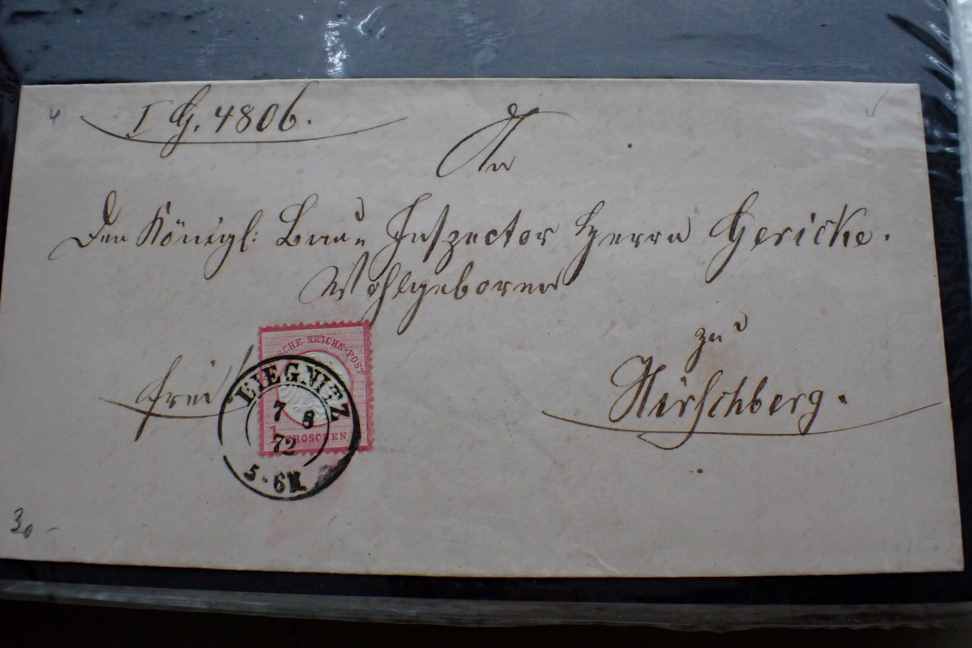 I G. 4806.
An
Den Königl: Bau-Inspector Herrn Gericke.
Wohlgeboren
zu
frei
Hirschberg.
REICHS-POST
GROSCHEN
LIEGNITZ
7 8
72
5-6N
30-